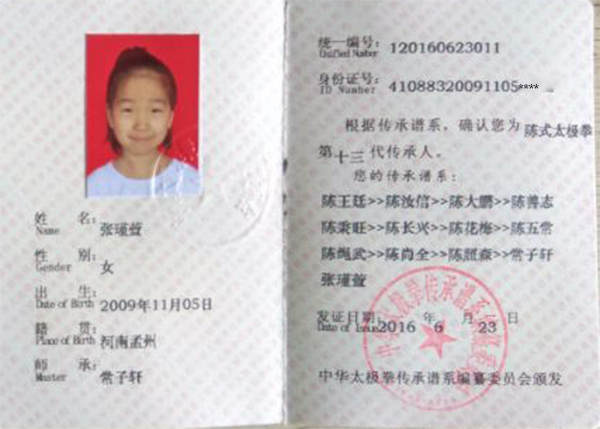 姓 名:
Name 张瑾萱
性 别:
Gender 女
出 生:
Date of Birth 2009年11月05日
籍 贯:
Place of Birth 河南孟州
师 承:
Master 常子轩
统一编号:
Unified Number 120160623011
身份证号:
ID Number 41088320091105****
根据传承谱系,确认您为陈式太极拳
第十三代传承人。
您的传承谱系:
陈王廷>>陈汝信>>陈大鹏>>陈善志
陈秉旺>>陈长兴>>陈花梅>>陈五常
陈绳武>>陈尚全>>陈照森>>常子轩
张瑾萱
发证日期:
Date of Issue 2016 年 6 月 23 日
中华太极拳传承谱系编纂委员会颁发
中华太极拳传承谱系编纂委员会